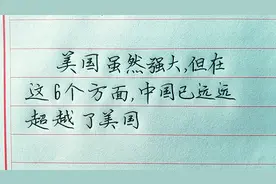 美国虽然强大,但在
这6个方面,中国已远远
超越了美国